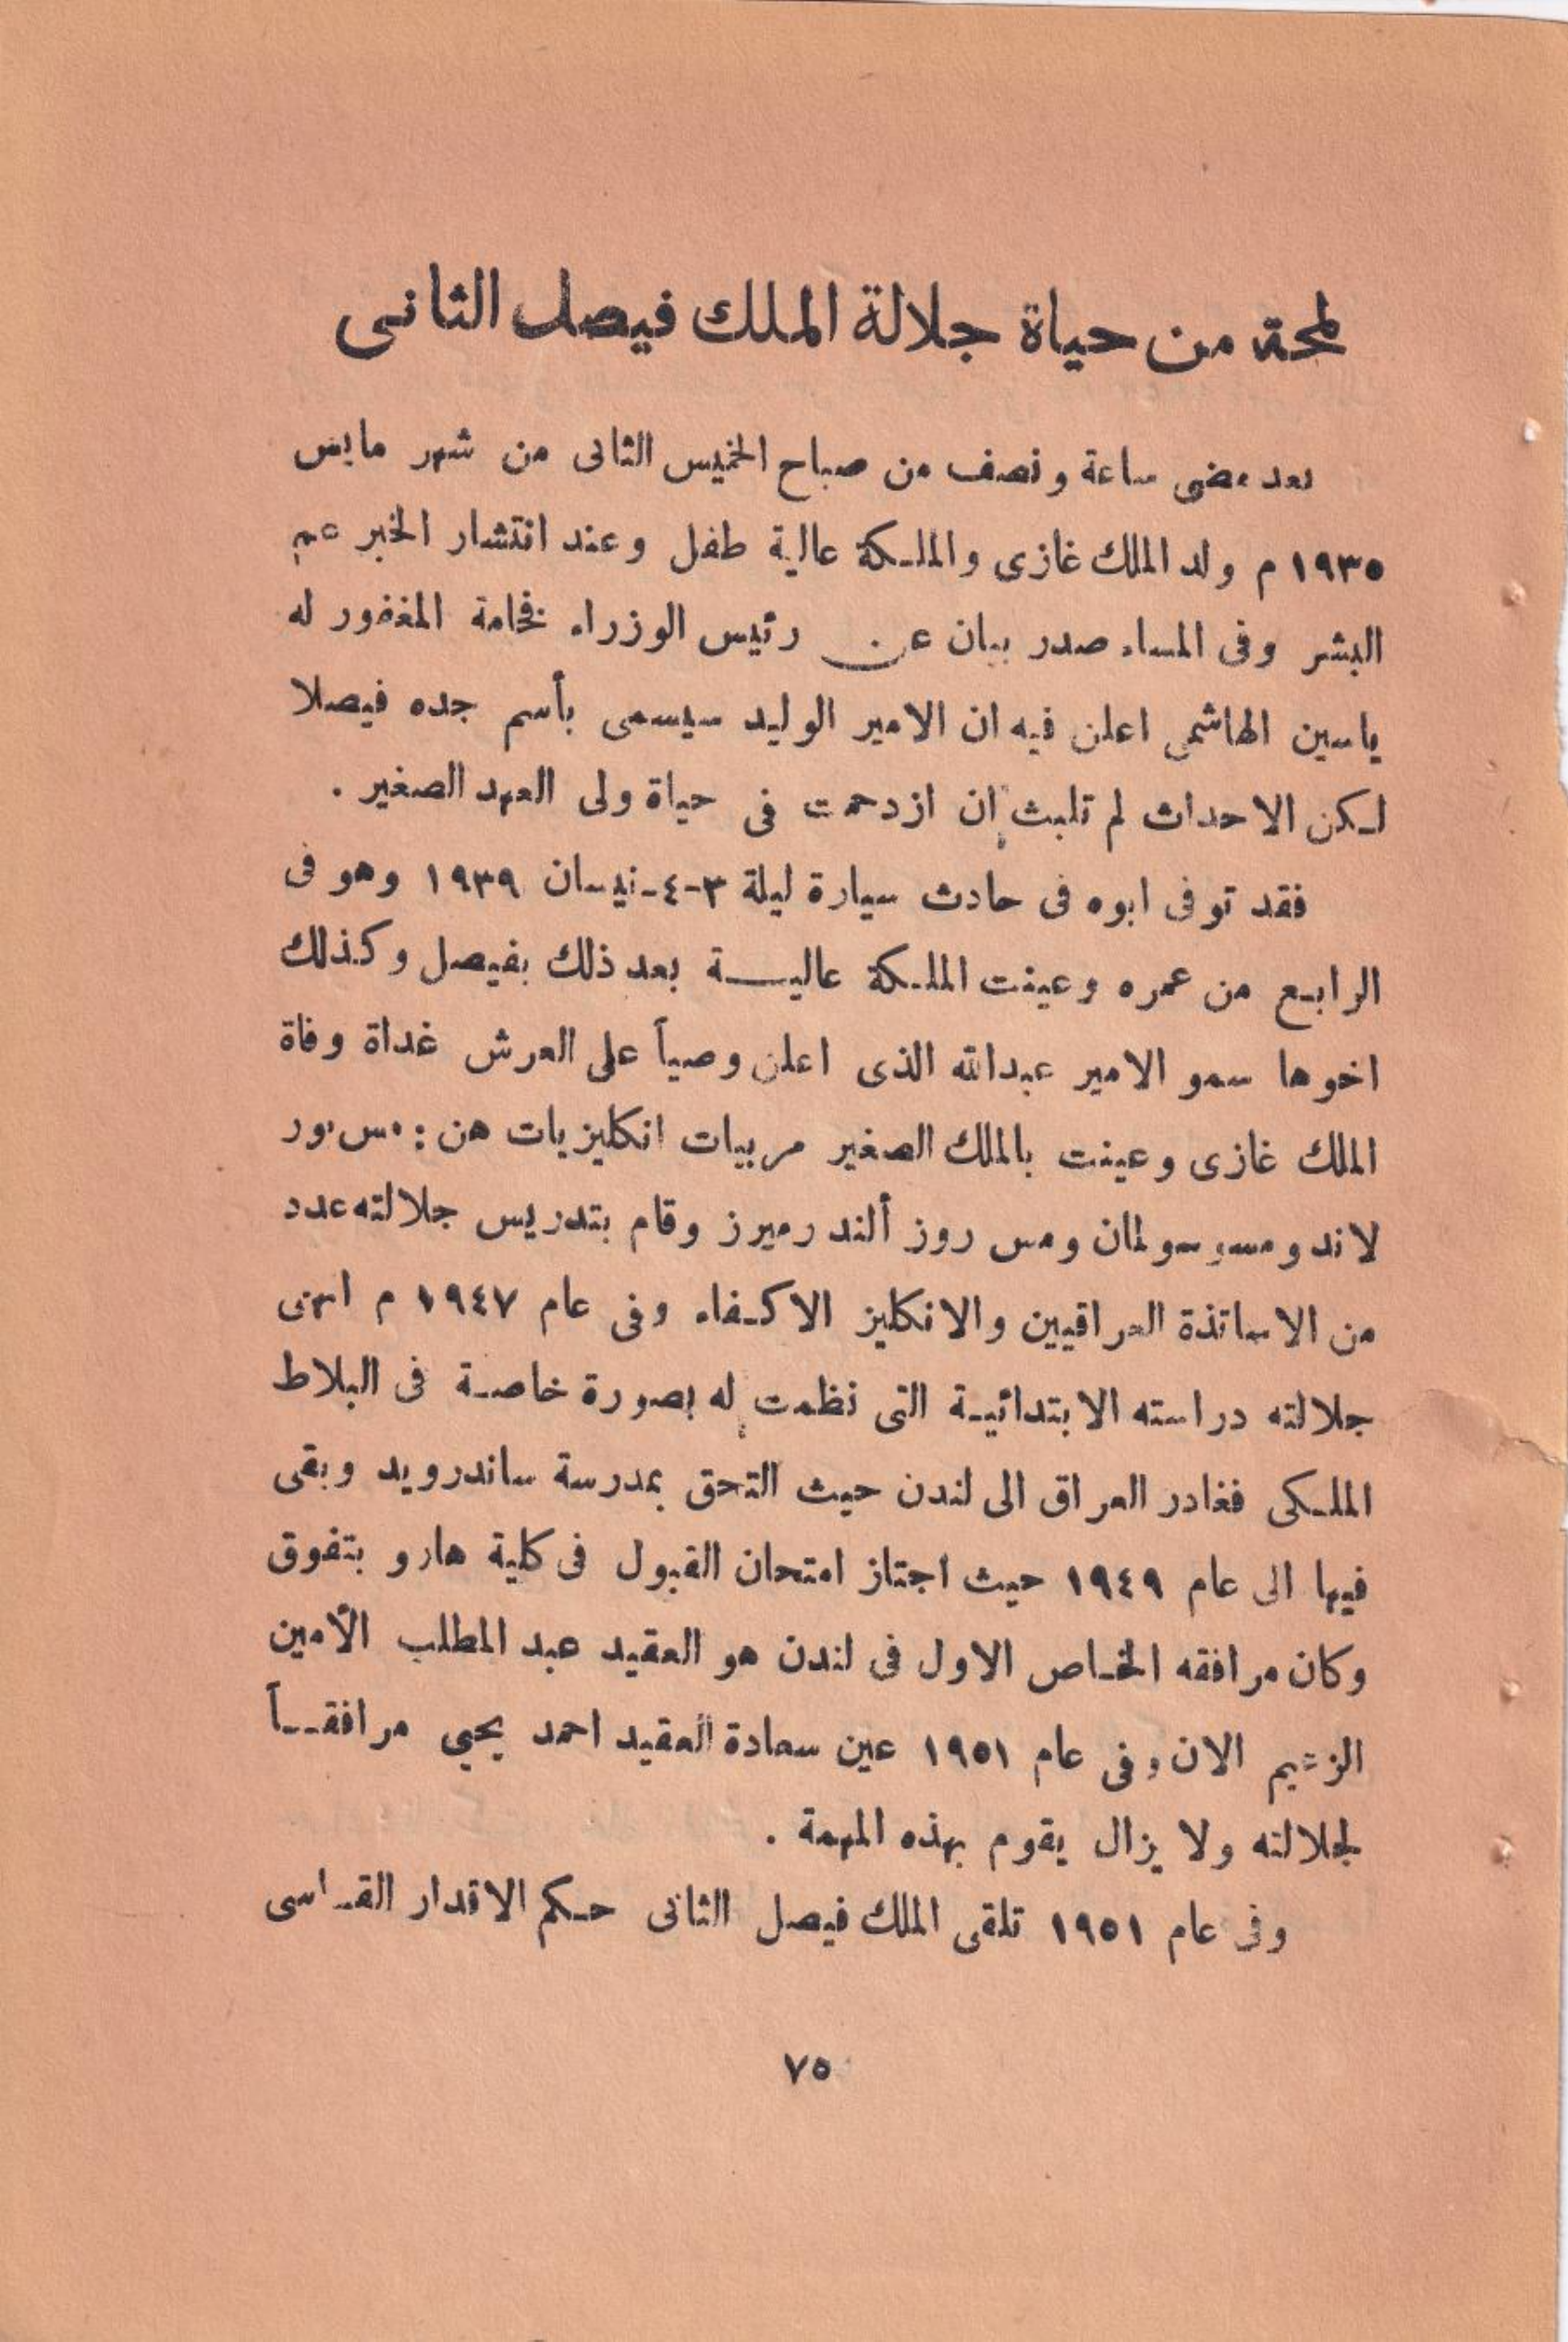 لمحة من حياة جلالة الملك فيصل الثانى
بعد مضى ساعة ونصف من صباح الخميس الثانى من شهر مايس
١٩٣٥ م ولد الملك غازى والملكة عالية طفل وعند انتشار الخبر عم
البشر وفى المساء صدر بيان عن رئيس الوزراء فخامة المغفور له
ياسين الهاشمى اعلن فيه ان الامير الوليد سيسمى بأسم جده فيصلا
لكن الاحداث لم تلبث ان ازدحمت فى حياة ولى العهد الصغير .
فقد توفى ابوه فى حادث سيارة ليلة ٣-٤-نيسان ١٩٣٩ وهو فى
الرابع من عمره وعينت الملكة عالية بعد ذلك بفيصل وكذلك
اخوها سمو الامير عبدالله الذى اعلن وصياً على العرش غداة وفاة
الملك غازى وعينت بالملك الصغير مربيات انكليزيات هن : مس بور
لاند ومسر سولمان ومس روز ألند رميرز وقام بتدريس جلالته عدد
من الاساتذة العراقيين والانكليز الاكفاء وفى عام ١٩٤٧ م انهى
جلالته دراسته الابتدائية التى نظمت له بصورة خاصة فى البلاط
الملكى فغادر العراق الى لندن حيث التحق بمدرسة ساندرويد وبقى
فيها الى عام ١٩٤٩ حيث اجتاز امتحان القبول فى كلية هارو بتفوق
وكان مرافقه الخاص الاول فى لندن هو العقيد عبد المطلب الأمين
الزعيم الان وفى عام ١٩٥١ عين سعادة العقيد احمد يحيى مرافقاً
لجلالته ولا يزال يقوم بهذه المهمة .
وفى عام ١٩٥١ تلقى الملك فيصل الثانى حكم الاقدار القاسى
٧٥